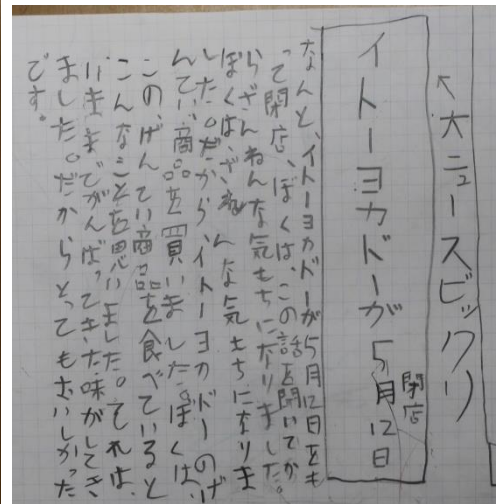 ↖大ニュースビックリ
イトーヨカドーが5月12日
閉店
なんと、イトーヨカドーが5月12日をも
って閉店、ぼくは、この話を聞いてか
らざんねんな気もちになりました。
ぼくは、ざんねんな気もちになりま
した。だから、イトーヨカドーのげ
んてい商品を買いました。ぼくは、
この、げんてい商品を食べていると
こんなことを思いました。それは、
いままでがんばってきた味がしてき
ました。だからとってもおいしかった
です。